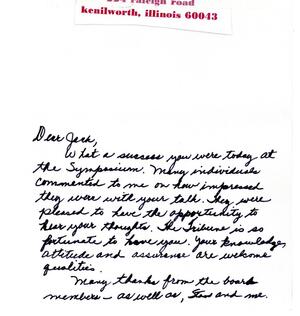 raleigh road
kenilworth, illinois 60043
Dear Jack,
What a success you were today at
the Symposium. Many individuals
commented to me on how impressed
they were with your talk. They were
pleased to have the opportunity to
hear your thoughts. The Tribune is so
fortunate to have you. Your knowledge,
attitude and assurance are welcome
qualities.
Many thanks from the board
members - as well as, Stan and me.